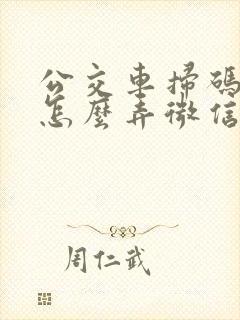 公交車掃碼
怎麼弄微信
周仁武